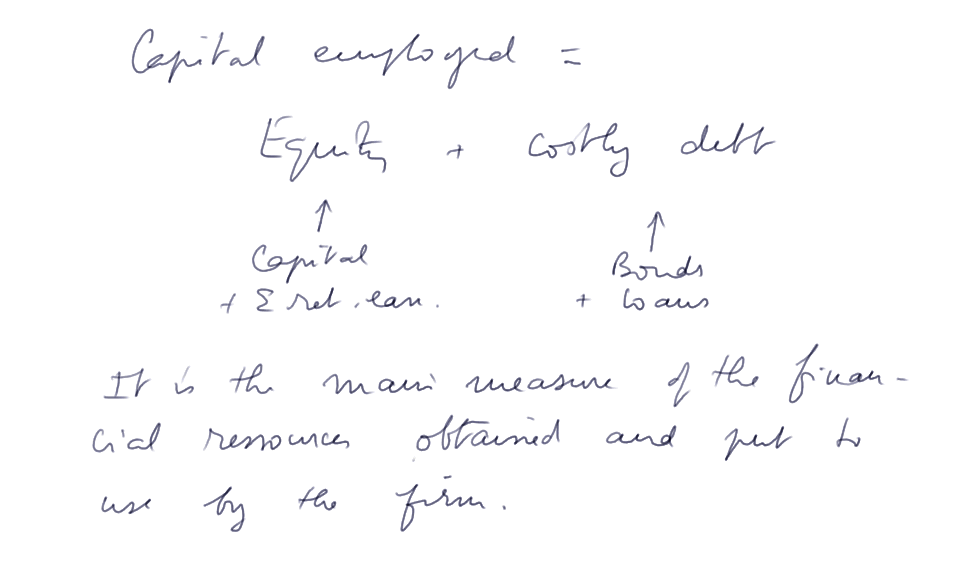 Capital employed =
Equity + costly debt
↑ ↑
Capital Bonds
+ Σ ret. ean. + loans
It is the main measure of the finan-
cial ressources obtained and put to
use by the firm.